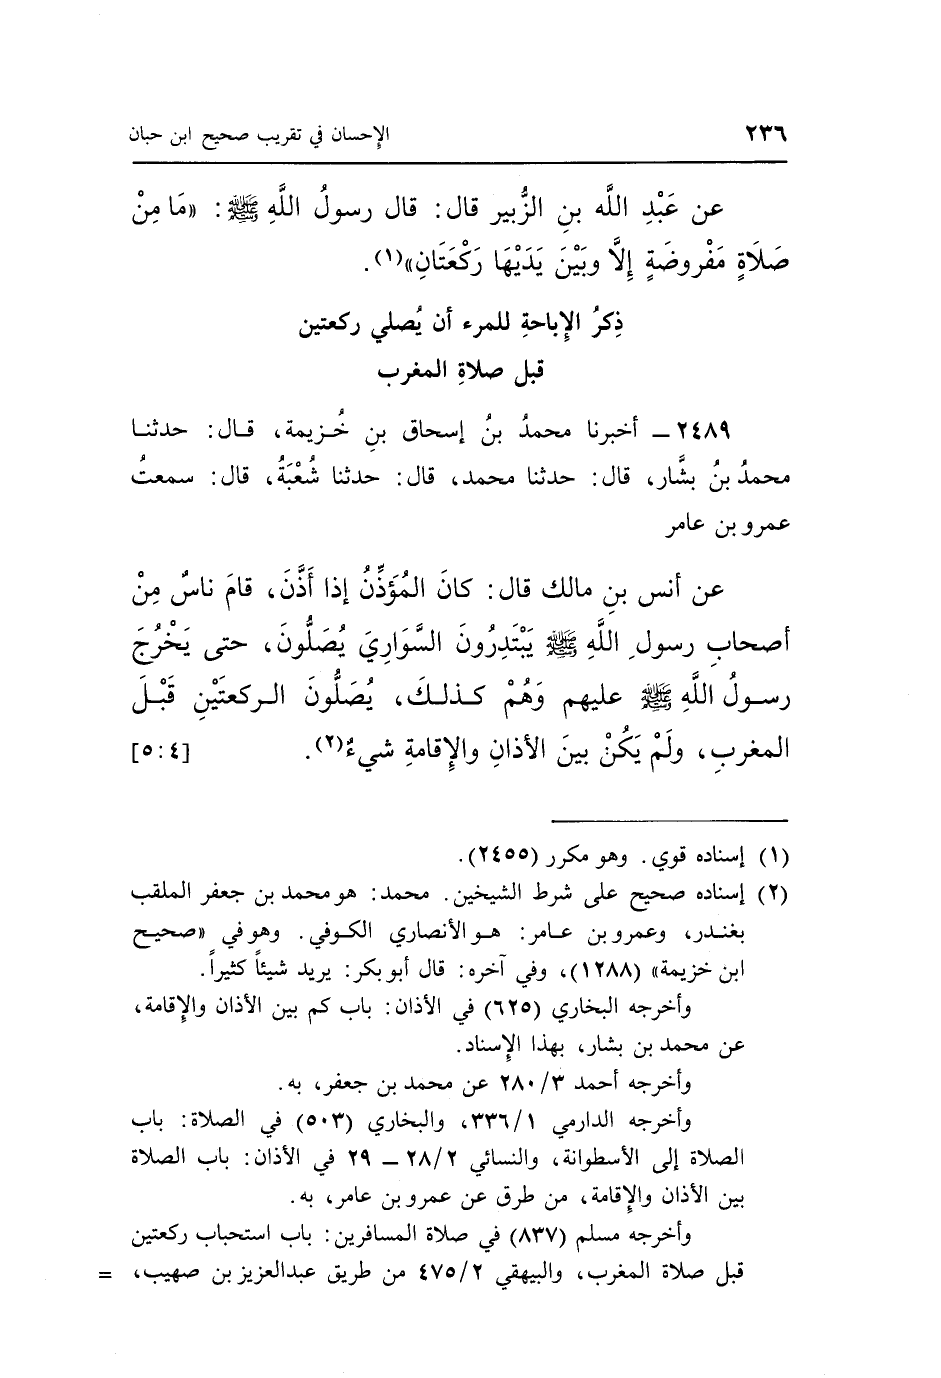 ٢٣٦ الإحسان في تقريب صحيح ابن حبان
عن عَبْدِ اللَّه بنِ الزُّبير قال: قال رسولُ اللَّهِ ﷺ: «مَا مِنْ
صَلَاةٍ مَفْروضَةٍ إِلَّا وبَيْنَ يَدَيْهَا رَكْعَتَانِ»(١).
ذِكرُ الإِباحةِ للمرء أن يُصلي ركعتين
قبل صلاةِ المغرب
٢٤٨٩ ــ أخبرنا محمدُ بنُ إسحاق بنِ خُزيمة، قال: حدثنا
محمدُ بنُ بشَّار، قال: حدثنا محمد، قال: حدثنا شُعْبَةُ، قال: سمعتُ
عمرو بن عامر
عن أنس بنِ مالك قال: كانَ المُؤَذِّنُ إذا أَذَّنَ، قامَ ناسٌ مِنْ
أصحابِ رسولِ اللَّهِ ﷺ يَبْتَدِرُونَ السَّوَارِيَ يُصَلُّونَ، حتى يَخْرُجَ
رسولُ اللَّهِ ﷺ عليهم وَهُمْ كذلكَ، يُصَلُّونَ الركعتَيْنِ قَبْلَ
المغربِ، ولَمْ يَكُنْ بينَ الأذانِ والإِقامةِ شيءٌ(٢). [٤: ٥]
(١) إسناده قوي. وهو مكرر (٢٤٥٥).
(٢) إسناده صحيح على شرط الشيخين. محمد: هو محمد بن جعفر الملقب
بغندر، وعمرو بن عامر: هو الأنصاري الكوفي. وهو في «صحيح
ابن خزيمة» (١٢٨٨)، وفي آخره: قال أبو بكر: يريد شيئاً كثيراً.
وأخرجه البخاري (٦٢٥) في الأذان: باب كم بين الأذان والإِقامة،
عن محمد بن بشار، بهذا الإِسناد.
وأخرجه أحمد ٢٨٠/٣ عن محمد بن جعفر، به.
وأخرجه الدارمي ٣٣٦/١، والبخاري (٥٠٣) في الصلاة: باب
الصلاة إلى الأسطوانة، والنسائي ٢٨/٢ ــ ٢٩ في الأذان: باب الصلاة
بين الأذان والإِقامة، من طرق عن عمرو بن عامر، به.
وأخرجه مسلم (٨٣٧) في صلاة المسافرين: باب استحباب ركعتين
قبل صلاة المغرب، والبيهقي ٤٧٥/٢ من طريق عبدالعزيز بن صهيب، =